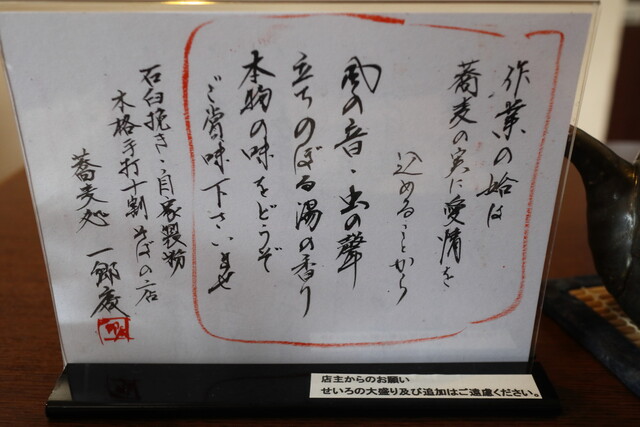 作業の始は
蕎麦の実に愛情を
込めることから
風の音・虫の聲
立ちのぼる湯の香り
本物の味をどうぞ
ご賞味下さいませ
石臼挽き・自家製粉
本格手打十割そばの店
蕎麦処 一郎庵
店主からのお願い
せいろの大盛り及び追加はご遠慮ください。